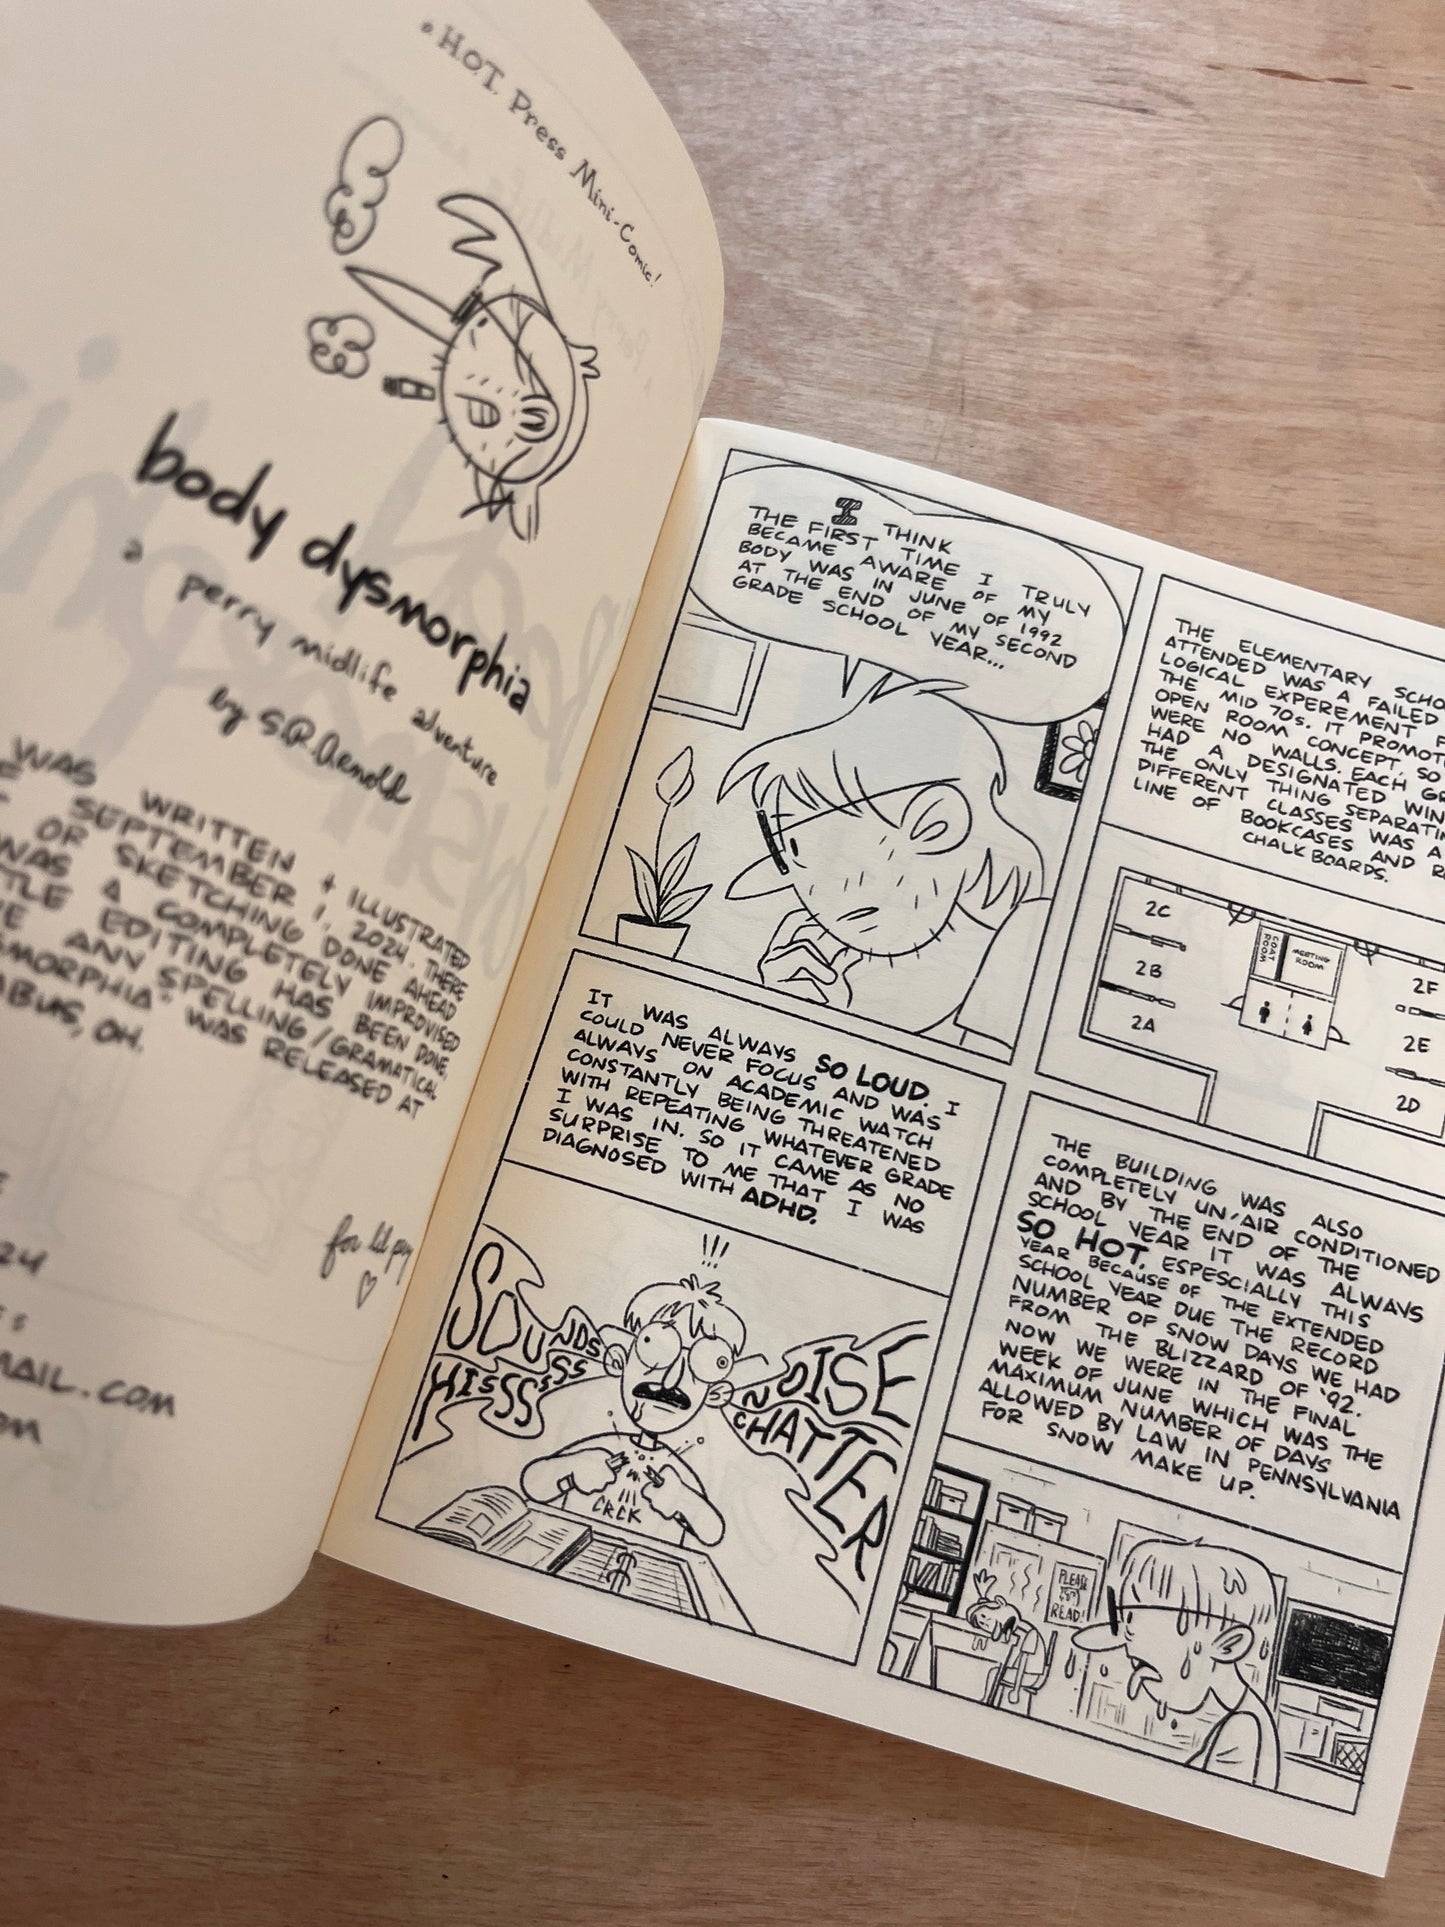 a H.O.T. Press Mini-Comic!
body dysmorphia
a perry midlife adventure
by S.R. Arnold
WAS WRITTEN + ILLUSTRATED
SEPTEMBER 1, 2024. THERE
OR SKETCHING DONE AHEAD
WAS A COMPLETELY IMPROVISED
EDITING HAS BEEN DONE,
ANY SPELLING/GRAMATICAL
WAS RELEASED AT
OH.
for lil pey
24
MAIL.COM
I THINK
THE FIRST TIME I TRULY
BECAME AWARE OF MY
BODY WAS IN JUNE OF 1992
AT THE END OF MY SECOND
GRADE SCHOOL YEAR...
THE ELEMENTARY
ATTENDED WAS A FAILED
LOGICAL EXPEREMENT
THE MID 70s. IT
OPEN ROOM CONCEPT, SO
WERE NO WALLS. EACH
HAD A DESIGNATED
THE ONLY THING
DIFFERENT CLASSES WAS A
LINE OF BOOKCASES AND
CHALK BOARDS.
2C
2B
2A
COAT ROOM
MEETING
ROOM
2F
2E
2D
IT WAS ALWAYS SO LOUD. I
COULD NEVER FOCUS AND WAS
ALWAYS ON ACADEMIC WATCH
CONSTANTLY BEING THREATENED
WITH REPEATING WHATEVER GRADE
I WAS IN. SO IT CAME AS NO
SURPRISE TO ME THAT I WAS
DIAGNOSED WITH ADHD.
!!!
SOUNDS
HISSSSSSS
NOISE
CHATTER
CRCK
THE BUILDING WAS ALSO
COMPLETELY UN-AIR CONDITIONED
AND BY THE END OF THE
SCHOOL YEAR IT WAS ALWAYS
SO HOT. ESPESCIALLY THIS
YEAR BECAUSE OF THE EXTENDED
SCHOOL YEAR DUE THE RECORD
NUMBER OF SNOW DAYS WE HAD
FROM THE BLIZZARD OF '92.
NOW WE WERE IN THE FINAL
WEEK OF JUNE WHICH WAS THE
MAXIMUM NUMBER OF DAYS
ALLOWED BY LAW IN PENNSYLVANIA
FOR SNOW MAKE UP.
PLEASE
READ!